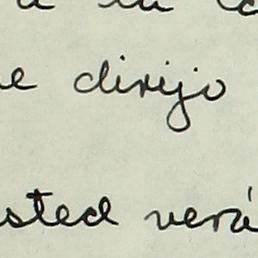 e dirijo
sted verá